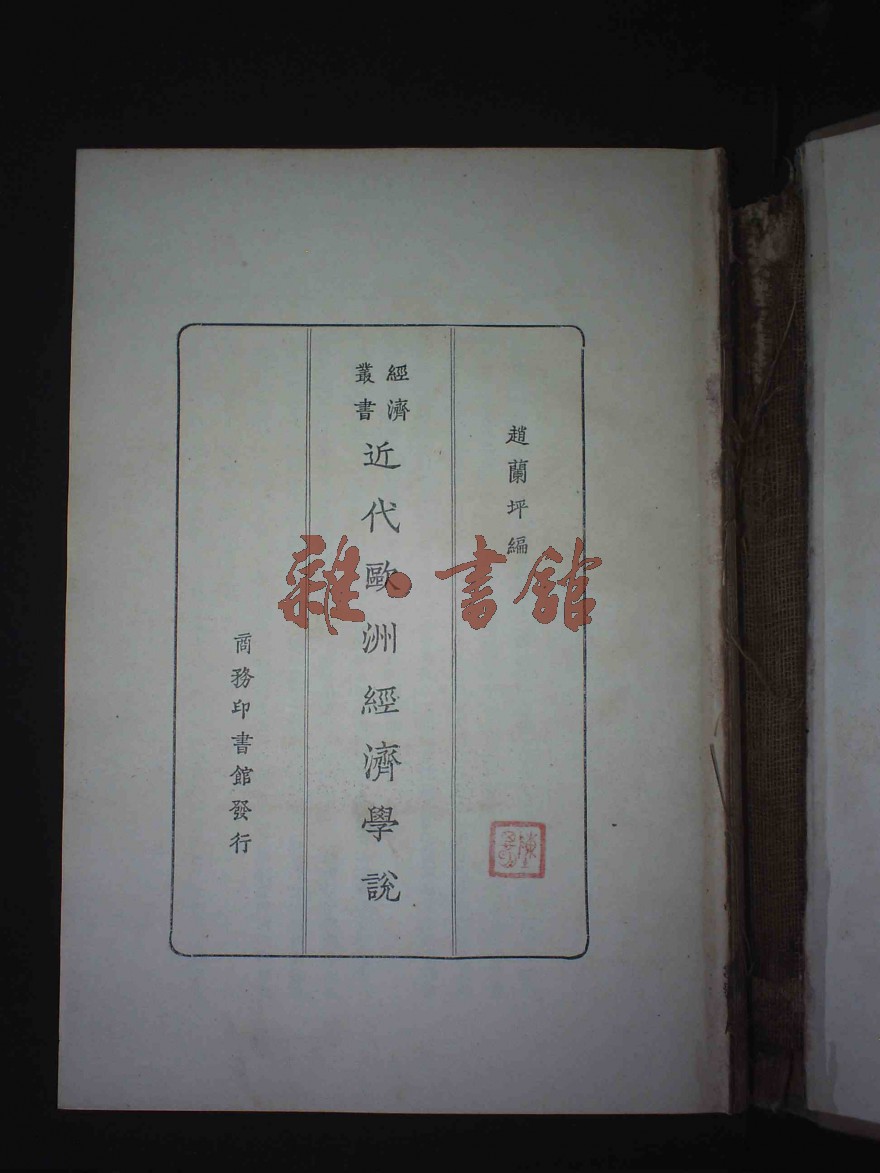 趙蘭坪編
經濟
叢書
近代歐洲經濟學說
商務印書館發行
雜·書館